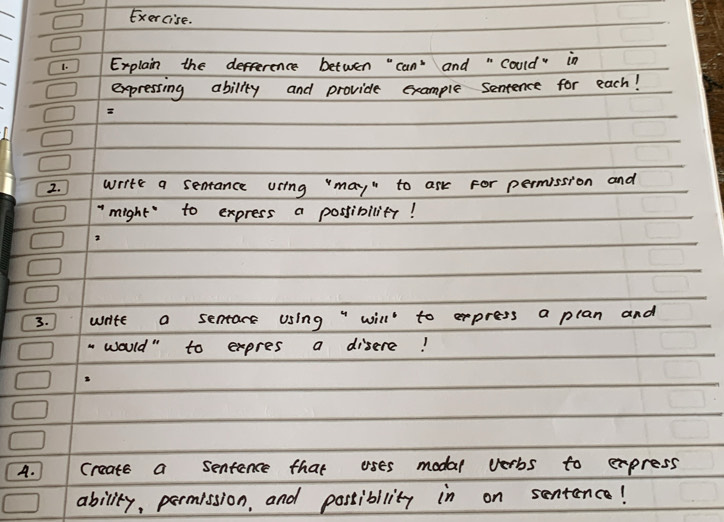 Exercise.
1. Explain the defference betwen "can" and "Could" in
expressing ability and provide example sentence for each!
=
2. Write a sentance using "may" to ask For permission and
"might" to express a possibility!
=
3. Write a sentace using "will" to express a plan and
"Would" to expres a disere!
=
4. Create a sentence that uses modal verbs to express
ability, permission, and possibility in on sentence!